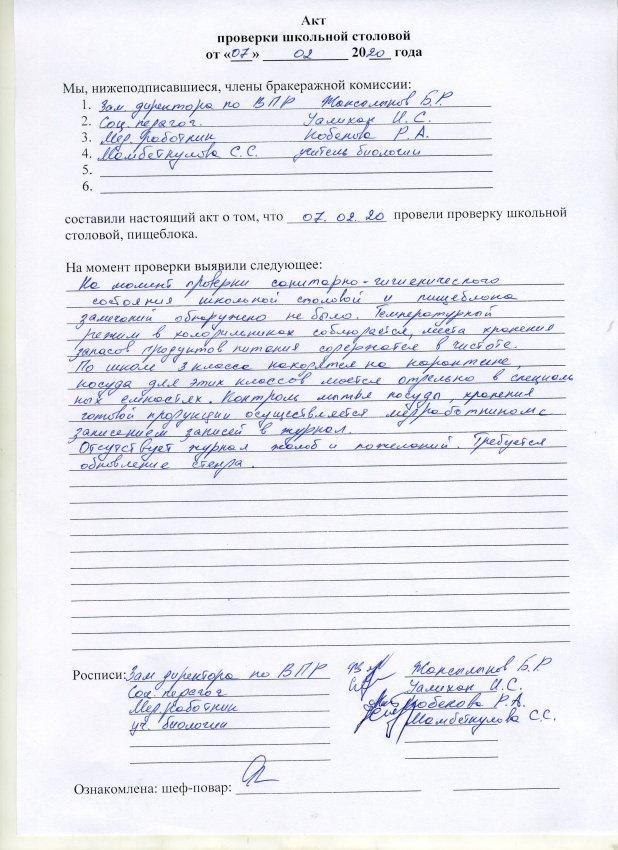 Акт
проверки школьной столовой
от «07» 02 2020 года
Мы, нижеподписавшиеся, члены бракеражной комиссии:
1. Зам. директора по ВПР Жансылыков Б.Р
2. Соц. педагог. Уалихан И.С.
3. Мед. работник Кобекова Р.А.
4. Мамбеткулова С.С. учитель биологии
5.
6.
составили настоящий акт о том, что 07.02.20 провели проверку школьной
столовой, пищеблока.
На момент проверки выявили следующее:
На момент проверки санитарно-гигиенического
состояния школьной столовой и пищеблока
замечаний обнаружено не было. Температурный
режим в холодильниках соблюдается, места хранения
запасов продуктов питания содержатся в чистоте.
По школе 3 класса находятся на карантине,
посуда для этих классов моется отдельно в специаль
ных емкостях. Контроль мытья посуды, хранения
готовой продукции осуществляется медработником с
записей в журнал.
Отсутствует журнал жалоб и пожеланий. Требуется
обновление стенда.
Росписи: Зам директора по ВПР Жансылыков Б.Р
Соц. педагог Уалихан И.С.
Мед работник Кобекова Р.А.
уч. биологии Мамбеткулова С.С.
Ознакомлена: шеф-повар: